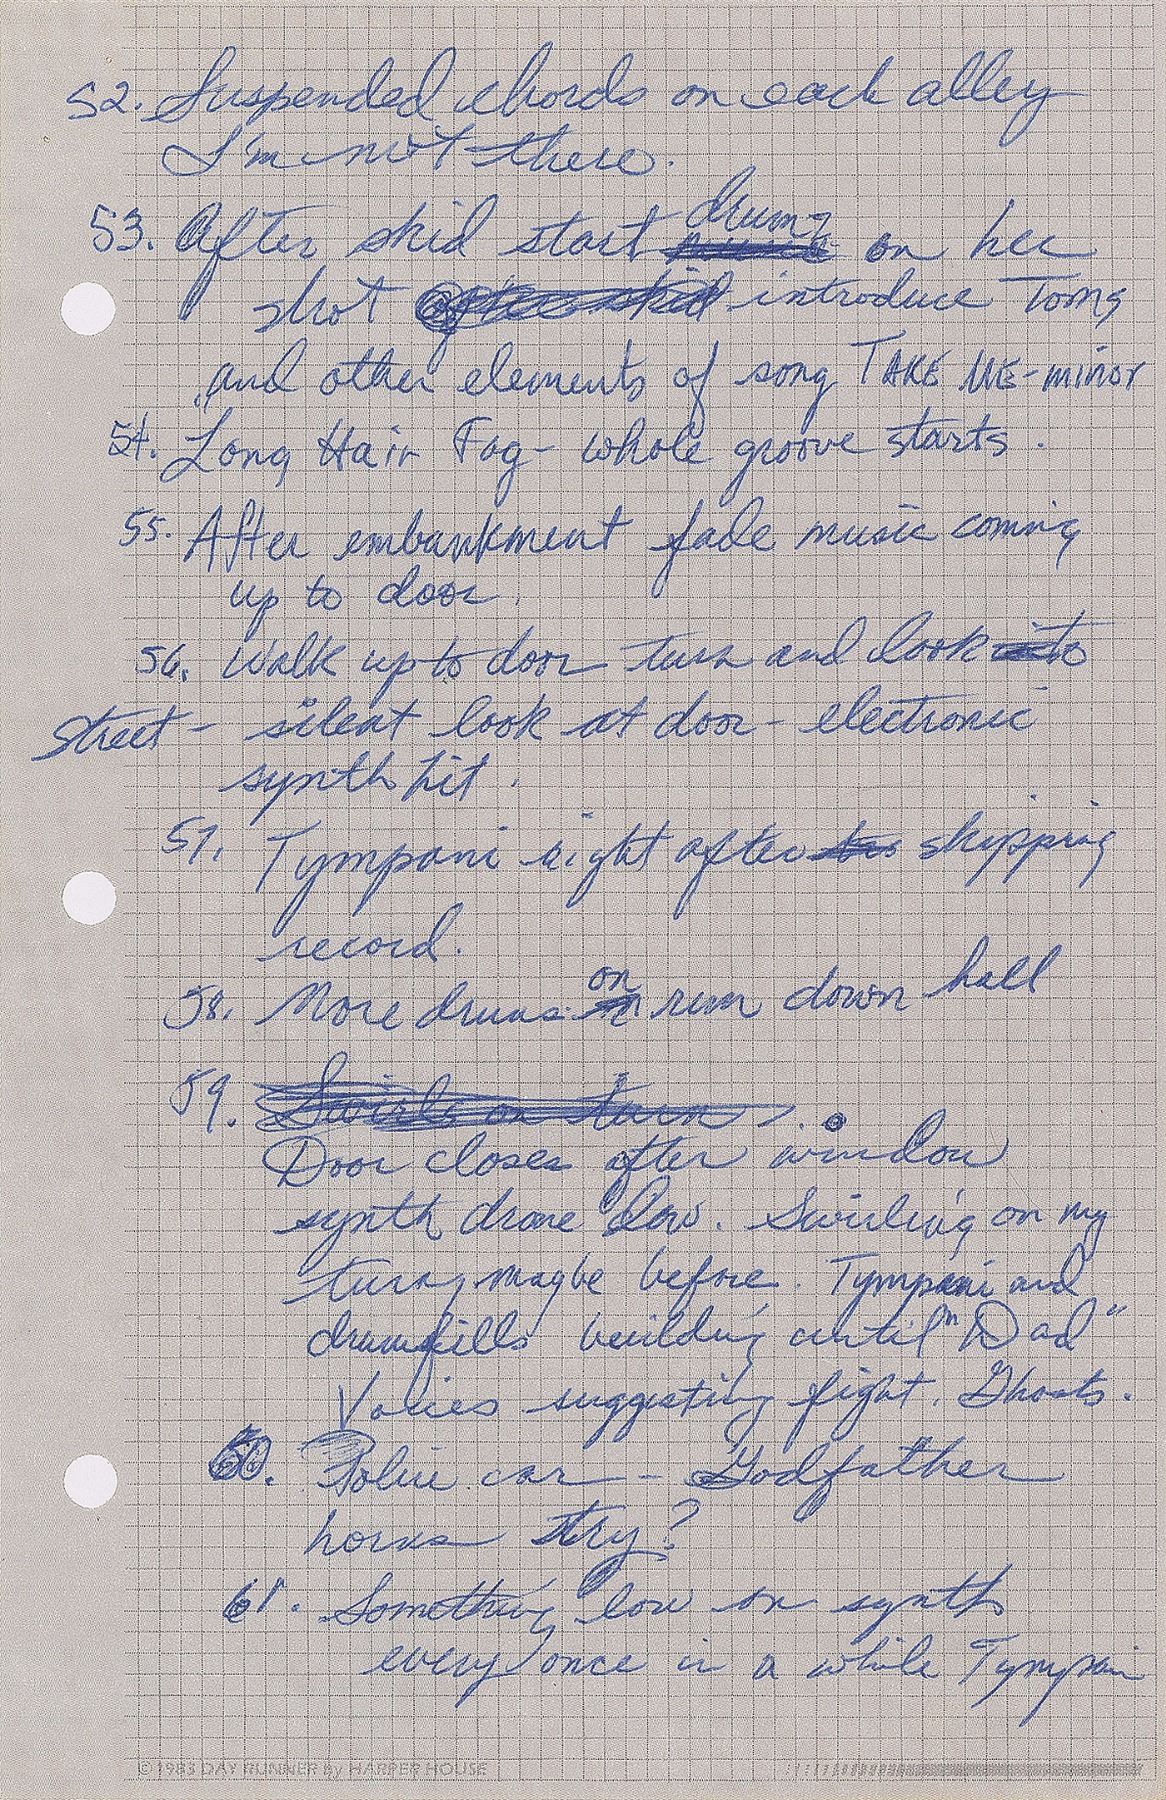 52. Suspended chords on each alley
I'm not there.
53. After skid start drums on her
shot after skid introduce Toms
and other elements of song TAKE ME-minor
54. Long Hair Fog- whole groove starts.
55. After embankment fade music coming
up to door.
56. Walk up to door turn and look into
street - silent look at door - electronic
synth hit.
57. Tympani right after skipping
record.
58. More drums on run down hall
59. Swirls on turn
Door closes after window
synth drone low. Swirling on my
turn, maybe before. Tympani and
drumfills building until "Dad"
Voices suggesting fight. Ghosts.
60. Police car - Godfather
horns try?
61. Something low on synth
every once in a while Tympani
©1983 DAY RUNNER by HARPER HOUSE